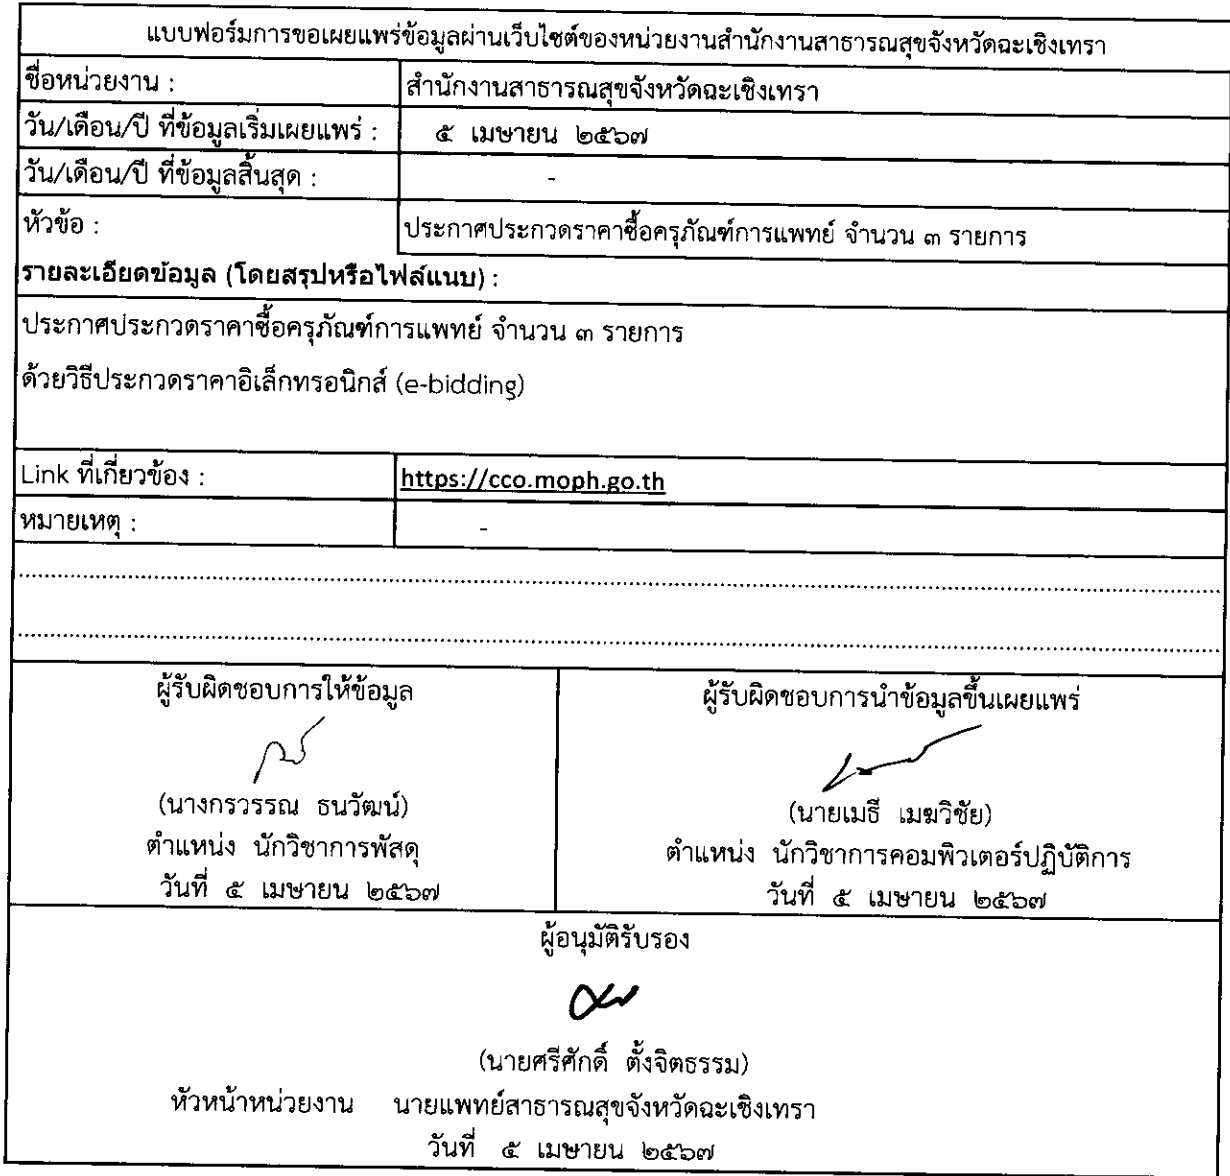 แบบฟอร์มการขอเผยแพร่ข้อมูลผ่านเว็บไซต์ของหน่วยงานสำนักงานสาธารณสุขจังหวัดฉะเชิงเทรา
ชื่อหน่วยงาน : สำนักงานสาธารณสุขจังหวัดฉะเชิงเทรา
วัน/เดือน/ปี ที่ข้อมูลเริ่มเผยแพร่ : ๕ เมษายน ๒๕๖๗
วัน/เดือน/ปี ที่ข้อมูลสิ้นสุด : -
หัวข้อ : ประกาศประกวดราคาซื้อครุภัณฑ์การแพทย์ จำนวน ๓ รายการ
รายละเอียดข้อมูล (โดยสรุปหรือไฟล์แนบ) :
ประกาศประกวดราคาซื้อครุภัณฑ์การแพทย์ จำนวน ๓ รายการ
ด้วยวิธีประกวดราคาอิเล็กทรอนิกส์ (e-bidding)
Link ที่เกี่ยวข้อง : https://cco.moph.go.th
หมายเหตุ : -
ผู้รับผิดชอบการให้ข้อมูล
(นางกรวรรณ ธนวัฒน์)
ตำแหน่ง นักวิชาการพัสดุ
วันที่ ๕ เมษายน ๒๕๖๗
ผู้รับผิดชอบการนำข้อมูลขึ้นเผยแพร่
(นายเมธี เมฆวิชัย)
ตำแหน่ง นักวิชาการคอมพิวเตอร์ปฏิบัติการ
วันที่ ๕ เมษายน ๒๕๖๗
ผู้อนุมัติรับรอง
(นายศรีศักดิ์ ตั้งจิตธรรม)
หัวหน้าหน่วยงาน นายแพทย์สาธารณสุขจังหวัดฉะเชิงเทรา
วันที่ ๕ เมษายน ๒๕๖๗